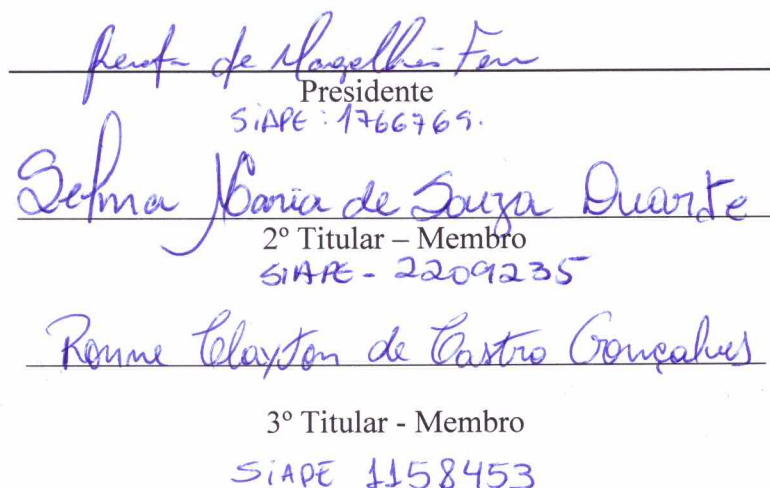 de Magalhães
Presidente
SiAPE: 1766769.
Selma Maria de Souza Duarte
2º Titular – Membro
SiAPE - 2209235
Ronne Clayton de Castro Gonçalves
3º Titular - Membro
SiAPE 1158453